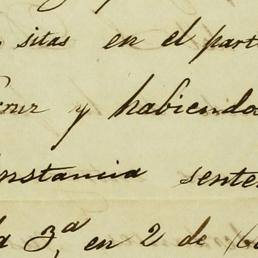 sitas en el part
y habiendo
nstancia sente
3ª, en 2 de